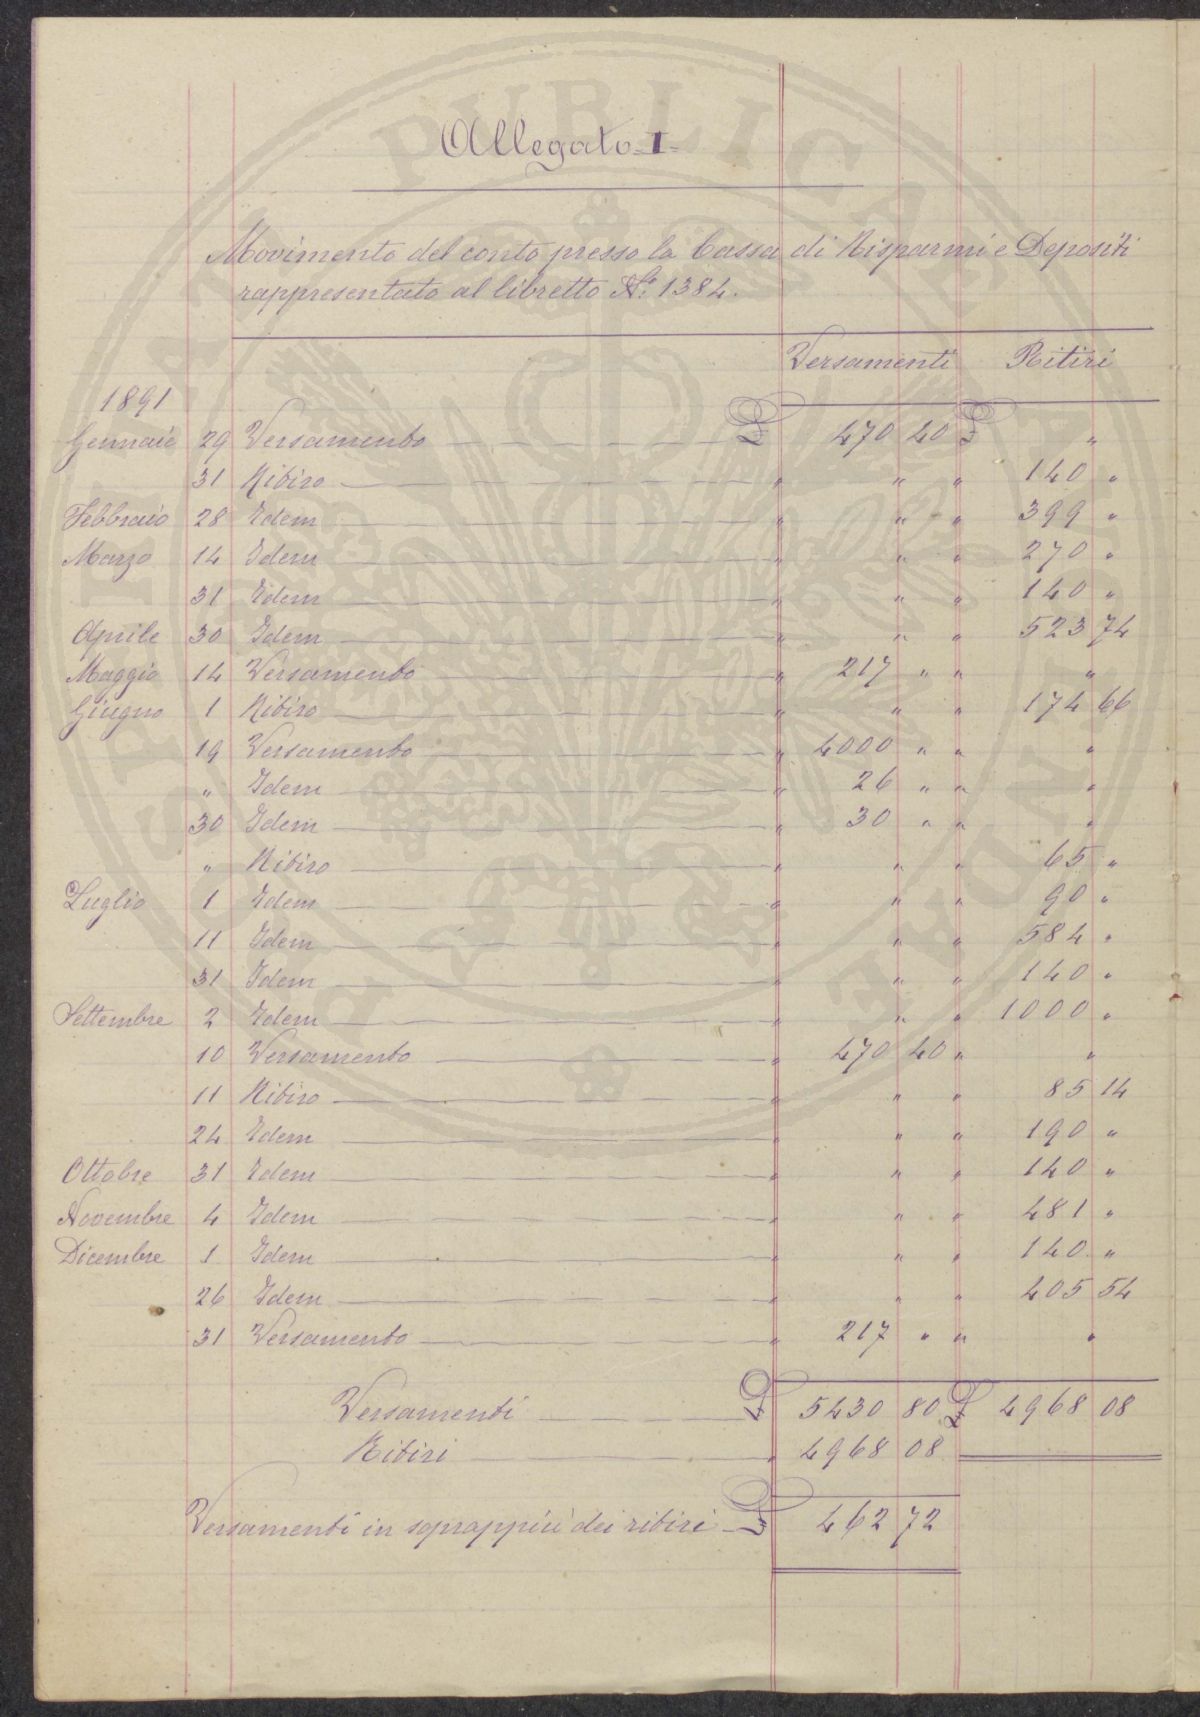 Allegato I
Movimento del conto presso la Cassa di Risparmi e Depositi
rappresentato al libretto N.° 1384.
Versamenti Ritiri
1891
Gennaio 29 Versamento £ 470 40 £ "
31 Ritiro " " " 140 "
Febbraio 28 Idem " " " 399 "
Marzo 14 Idem " " " 270 "
31 Idem " " " 140 "
Aprile 30 Idem " " " 523 74
Maggio 14 Versamento " 217 " " "
Giugno 1 Ritiro " " " 174 66
19 Versamento " 4000 " " "
" Idem " 26 " " "
30 Idem " 30 " " "
" Ritiro " " " 65 "
Luglio 1 Idem " " " 90 "
11 Idem " " " 584 "
31 Idem " " " 140 "
Settembre 2 Idem " " " 1000 "
10 Versamento " 470 40 " "
11 Ritiro " " " 85 14
24 Idem " " " 190 "
Ottobre 31 Idem " " " 140 "
Novembre 4 Idem " " " 481 "
Dicembre 1 Idem " " " 140 "
26 Idem " " " 405 54
31 Versamento " 217 " " "
Versamenti £ 5430 80 £ 4968 08
Ritiri " 4968 08
Versamenti in soprappiù dei ritiri £ 462 72